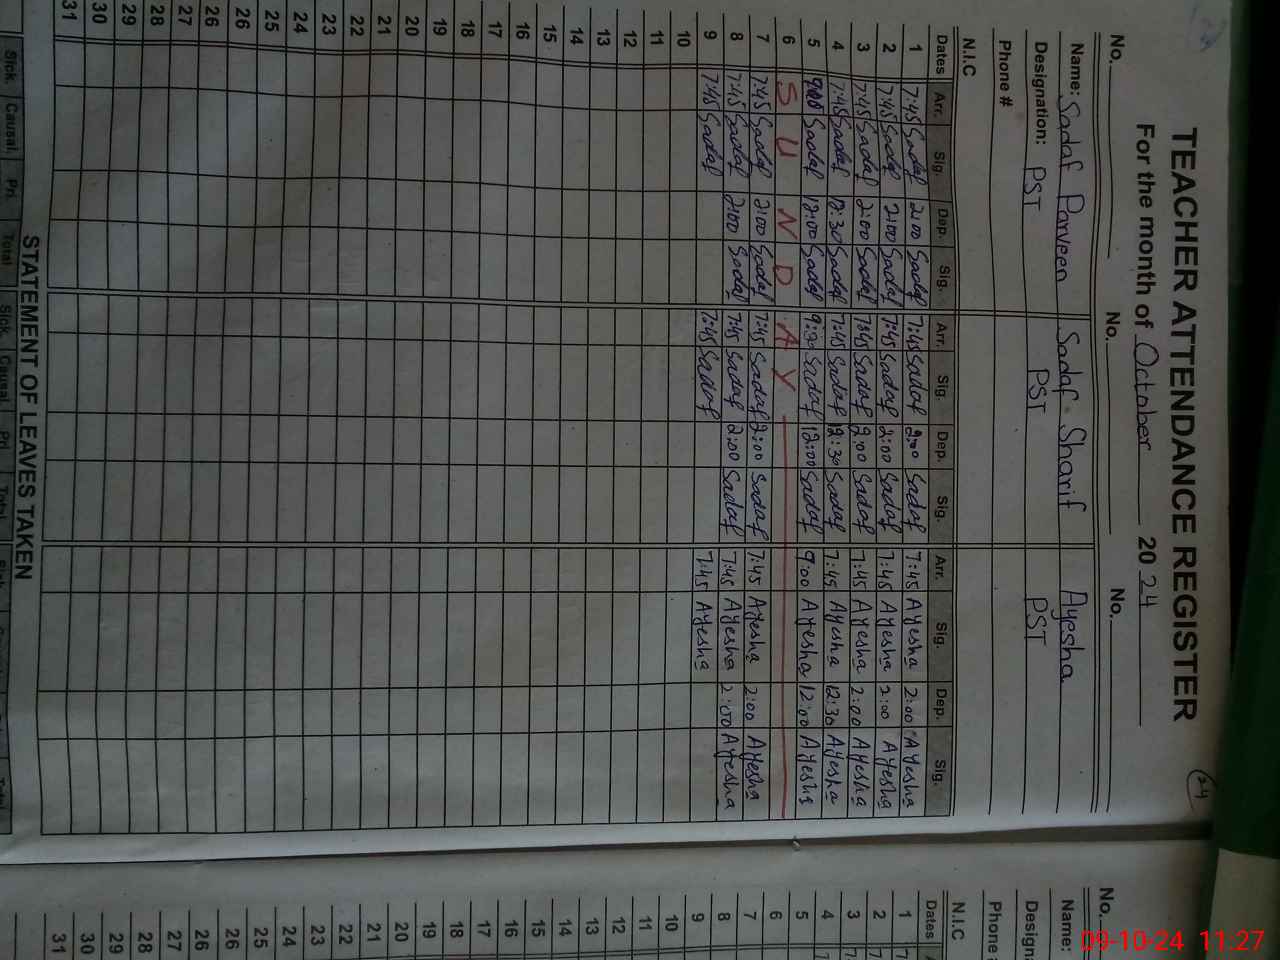 24
TEACHER ATTENDANCE REGISTER
For the month of October 2024
No. No. No.
Name: Sadaf Parveen Sadaf Sharif Ayesha
Designation: PST PST PST
Phone #
N.I.C
Dates Arr. Sig. Dep. Sig. Arr. Sig. Dep. Sig. Arr. Sig. Dep. Sig.
1 7:45 Sadaf 2:00 Sadaf 7:45 Sadaf 2:00 Sadaf 7:45 Ayesha 2:00 Ayesha
2 7:45 Sadaf 2:00 Sadaf 7:45 Sadaf 2:00 Sadaf 7:45 Ayesha 2:00 Ayesha
3 7:45 Sadaf 2:00 Sadaf 7:45 Sadaf 2:00 Sadaf 7:45 Ayesha 2:00 Ayesha
4 7:45 Sadaf 12:30 Sadaf 7:45 Sadaf 12:30 Sadaf 7:45 Ayesha 12:30 Ayesha
5 9:00 Sadaf 12:00 Sadaf 9:00 Sadaf 12:00 Sadaf 9:00 Ayesha 12:00 Ayesha
6 SUNDAY
7 7:45 Sadaf 2:00 Sadaf 7:45 Sadaf 2:00 Sadaf 7:45 Ayesha 2:00 Ayesha
8 7:45 Sadaf 2:00 Sadaf 7:45 Sadaf 2:00 Sadaf 7:45 Ayesha 2:00 Ayesha
9 7:45 Sadaf 7:45 Sadaf 7:45 Ayesha
10
11
12
13
14
15
16
17
18
19
20
21
22
23
24
25
26
26
27
28
29
30
31
STATEMENT OF LEAVES TAKEN
Sick. Causal. Pri. Total Sick. Causal. Pri. Total
No.
Name:
Designa
Phone
N.I.C
Dates
1
2
3
4
5
6
7
8
9
10
11
12
13
14
15
16
17
18
19
20
21
22
23
24
25
26
26
27
28
29
30
31
09-10-24 11:27